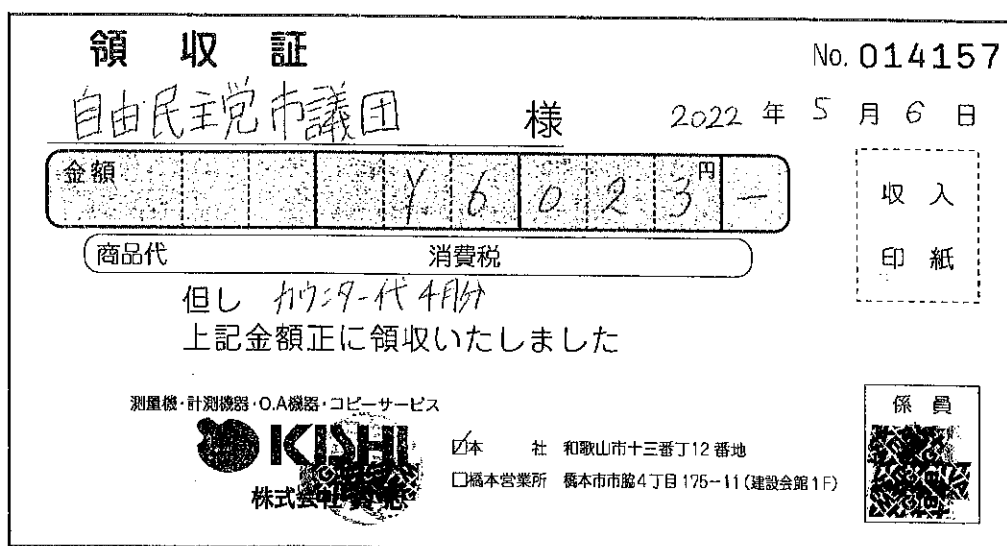 領収証 No. 014157
自由民主党市議団 様 2022 年 5 月 6 日
金額 ¥6023 円 -
収入
印紙
商品代 消費税
但し カウンター代 4月分
上記金額正に領収いたしました
測量機・計測機器・O.A機器・コピーサービス
係員
KISHI
☑本 社 和歌山市十三番丁12番地
□橋本営業所 橋本市市脇4丁目175-11(建設会館1F)
株式会社